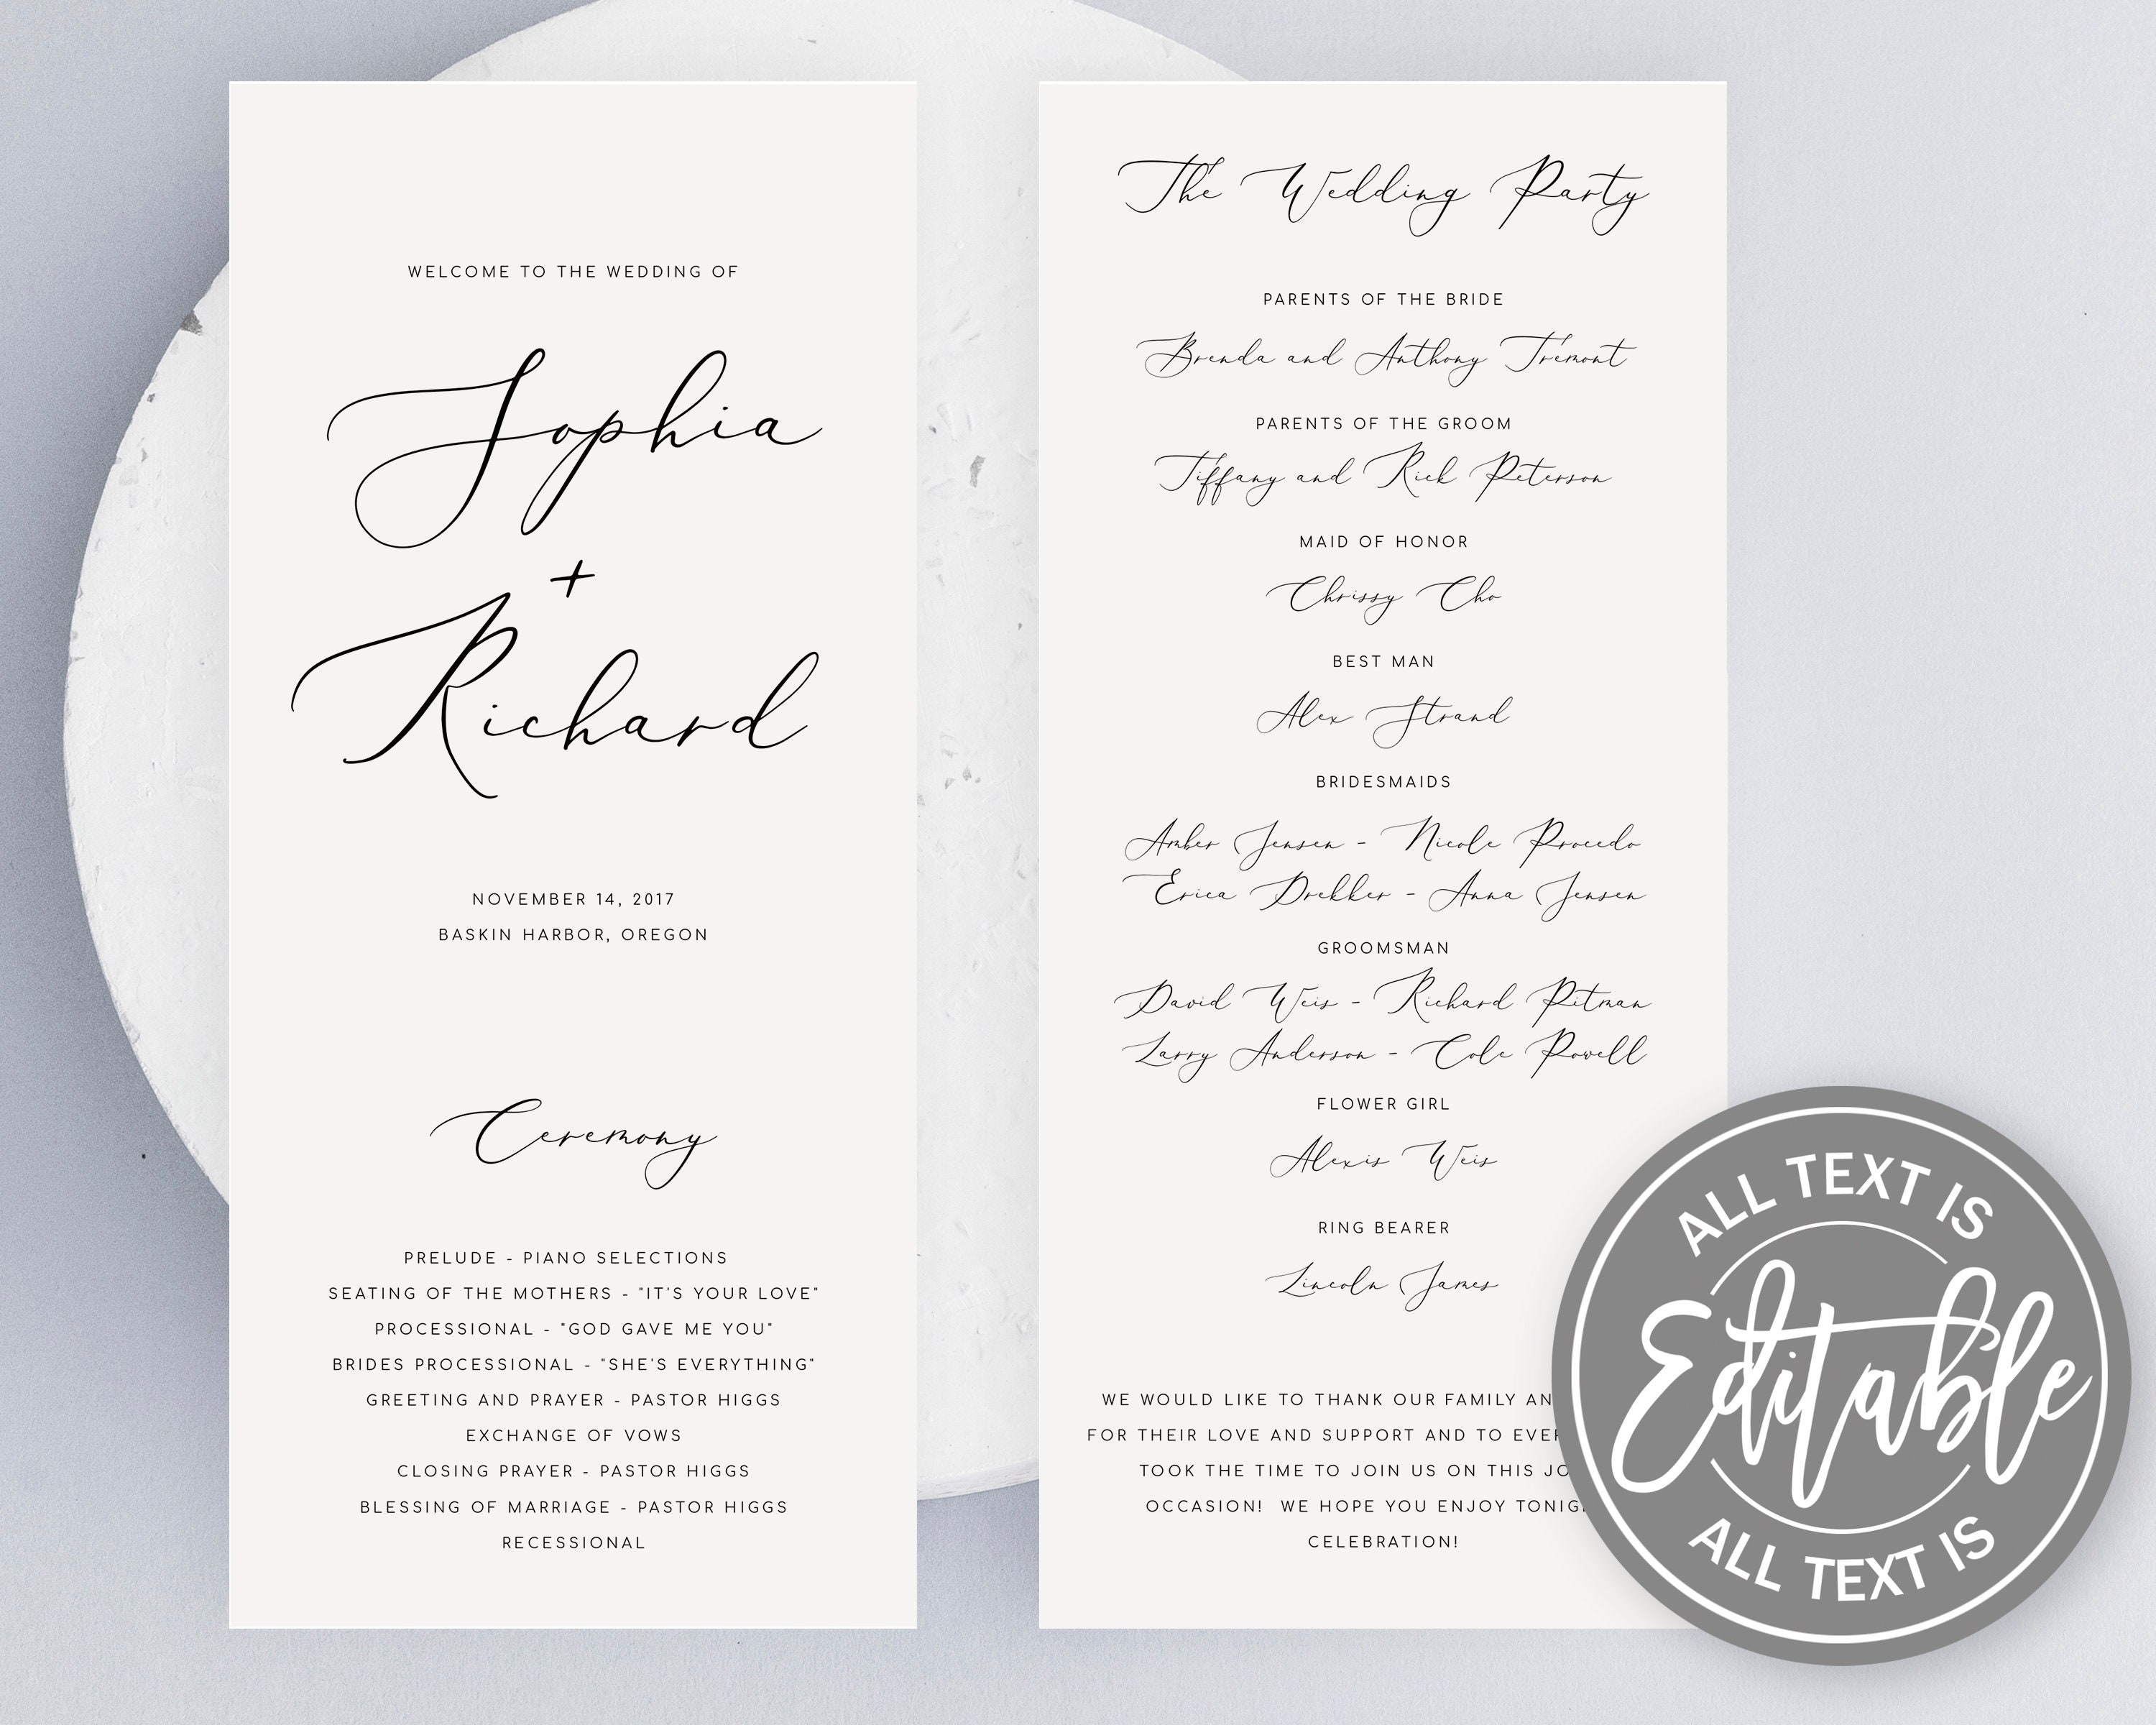 WELCOME TO THE WEDDING OF
Sophia
+
Richard
NOVEMBER 14, 2017
BASKIN HARBOR, OREGON
Ceremony
PRELUDE - PIANO SELECTIONS
SEATING OF THE MOTHERS - "IT'S YOUR LOVE"
PROCESSIONAL - "GOD GAVE ME YOU"
BRIDES PROCESSIONAL - "SHE'S EVERYTHING"
GREETING AND PRAYER - PASTOR HIGGS
EXCHANGE OF VOWS
CLOSING PRAYER - PASTOR HIGGS
BLESSING OF MARRIAGE - PASTOR HIGGS
RECESSIONAL
The Wedding Party
PARENTS OF THE BRIDE
Brenda and Anthony Tremont
PARENTS OF THE GROOM
Tiffany and Rick Peterson
MAID OF HONOR
Chrissy Cho
BEST MAN
Alex Strand
BRIDESMAIDS
Amber Jensen - Nicole Procedo
Erica Drekker - Anna Jensen
GROOMSMAN
David Weis - Richard Pitman
Larry Anderson - Cole Powell
FLOWER GIRL
Alexis Weis
RING BEARER
Lincoln James
WE WOULD LIKE TO THANK OUR FAMILY
FOR THEIR LOVE AND SUPPORT AND TO
TOOK THE TIME TO JOIN US ON THIS
OCCASION! WE HOPE YOU ENJOY
CELEBRATION!
ALL TEXT IS
Editable
ALL TEXT IS